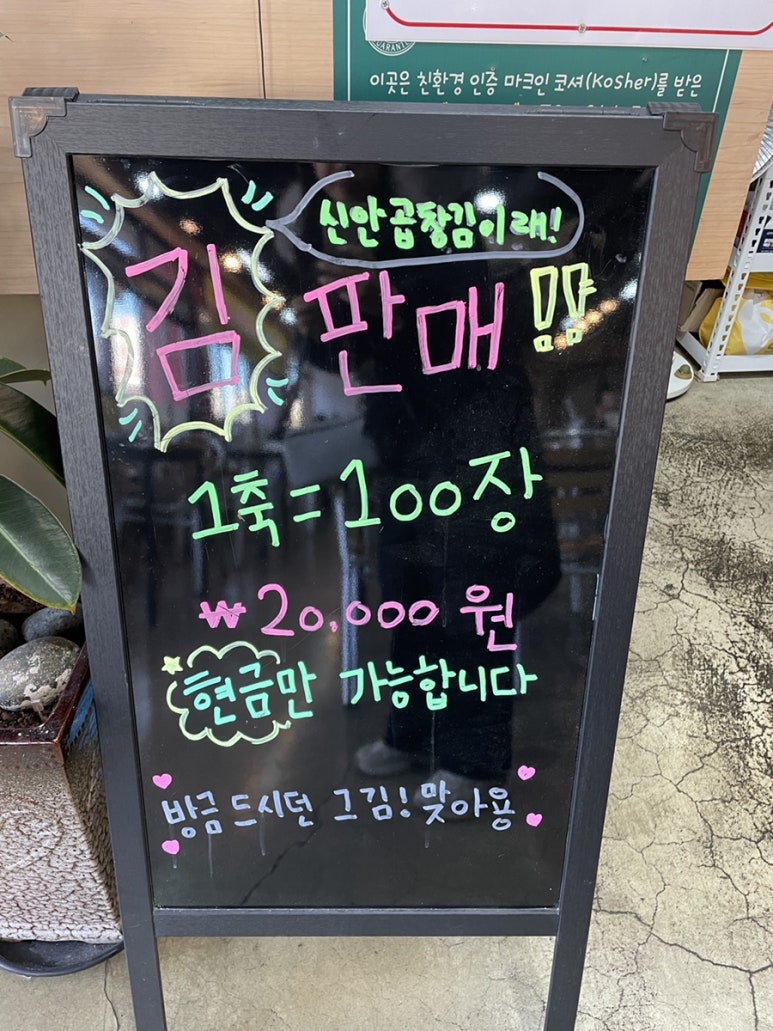 이곳은 친환경 인증 마크인 코셔(Kosher)를 받은
신안곱창김이래!
김 판매!!
1축=100장
₩20,000 원
현금만 가능합니다
방금 드시던 그김! 맞아용